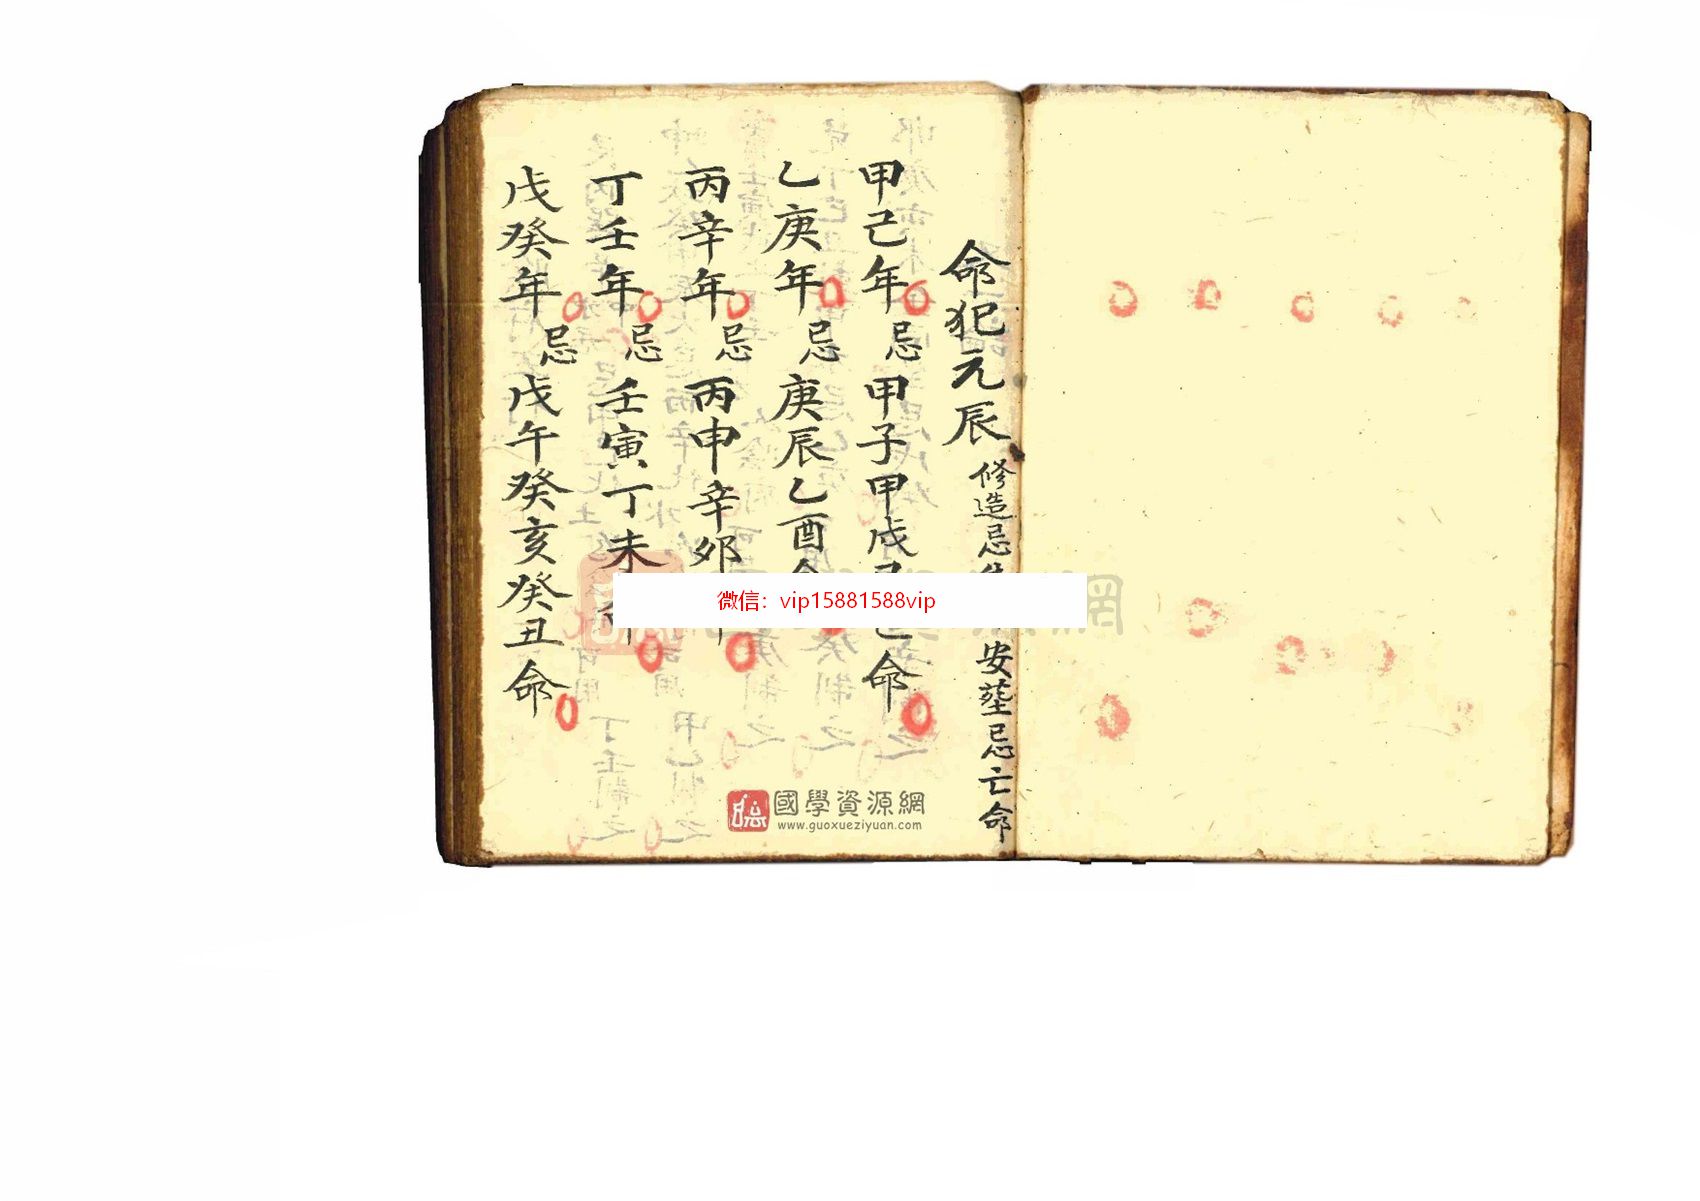 命犯元辰 修造忌生 安塟忌亡命
甲己年忌甲子甲戌己巳命
乙庚年忌庚辰乙酉命
丙辛年忌丙申辛卯
丁壬年忌壬寅丁未命
戊癸年忌戊午癸亥癸丑命
微信：vip15881588vip
國學資源網
www.guoxueziyuan.com